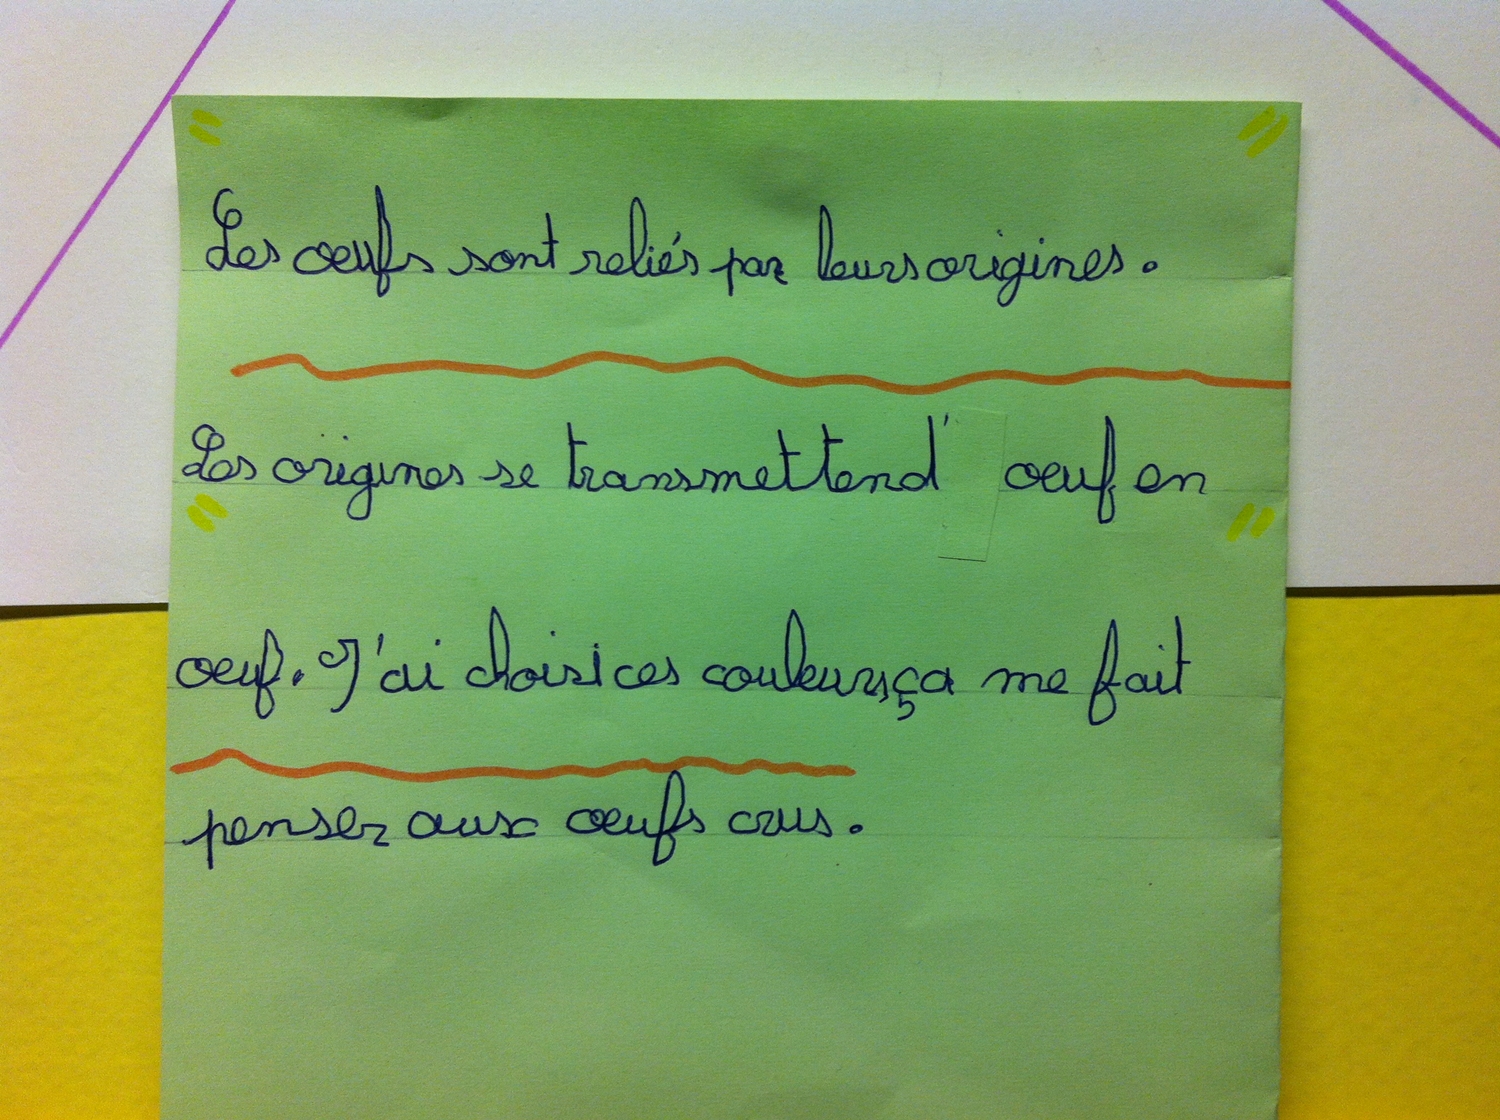 Les oeufs sont reliés par leurs origines.
Les origines se transmettend' oeuf en
oeuf. J'ai choisi ces couleurs ça me fait
penser aux oeufs crus.